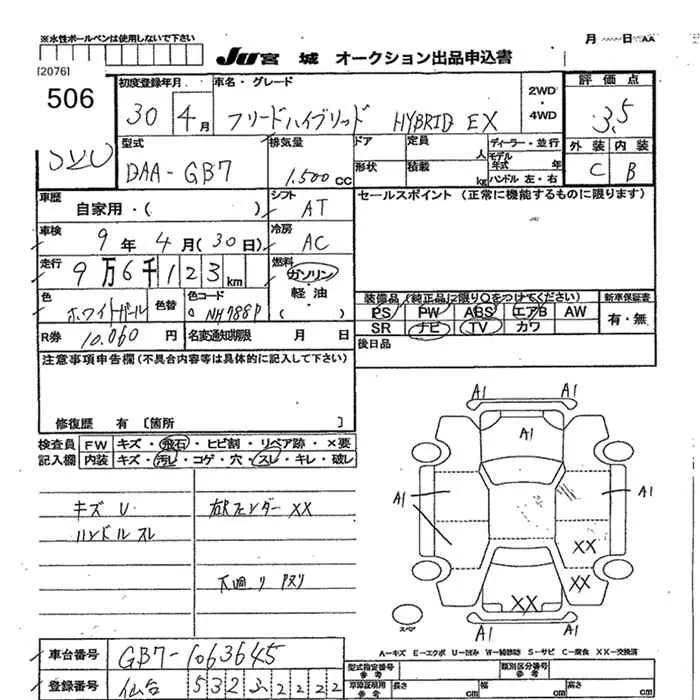 ※水性ボールペンは使用しないで下さい
月 日 AA
[2076]
JU宮城 オークション出品申込書
506
初度登録年月
30 4月
車名・グレード
フリードハイブリッド HYBRID EX
2WD・4WD
評価点
3.5
外装 内装
C B
型式
DAA-GB7
排気量
1.500cc
ドア 定員 人
形状 積載 kg
ディーラー・並行
モデル年式 年
ハンドル 左・右
車歴
自家用・( )
シフト
AT
セールスポイント(正常に機能するものに限ります)
車検
9年 4月(30日)
冷房
AC
走行
9万6千123km
燃料
ガソリン・軽油・( )
色
ホワイトパール
色替
色コード
NH788P
装備品(純正品に限り○をつけてください)
新車保証書
PS PW ABS エアB AW
有・無
SR ナビ TV カワ
R券 10.060円
名変通知期限 月 日
後日品
注意事項申告欄(不具合内容等は具体的に記入して下さい)
修復歴 有〔箇所 〕
検査員記入欄
FW キズ・飛石・ヒビ割・リペア跡・×要
内装 キズ・汚レ・コゲ・穴・スレ・キレ・破レ
キズ U
ハンドルスレ
右Rフェンダー XX
下廻り ヌリ
A1 A1
A1
A1 A1
XX
XX
XX
A1 A1
スペア
A-キズ E-エクボ U-凹み W-補修跡 S-サビ C-腐食 XX-交換済
車台番号 GB7-1063645
登録番号 仙台 532 2222
型式指定番号 参考
類別区分番号 参考
車庫証明用 参考
長さ cm 幅 cm 高さ cm